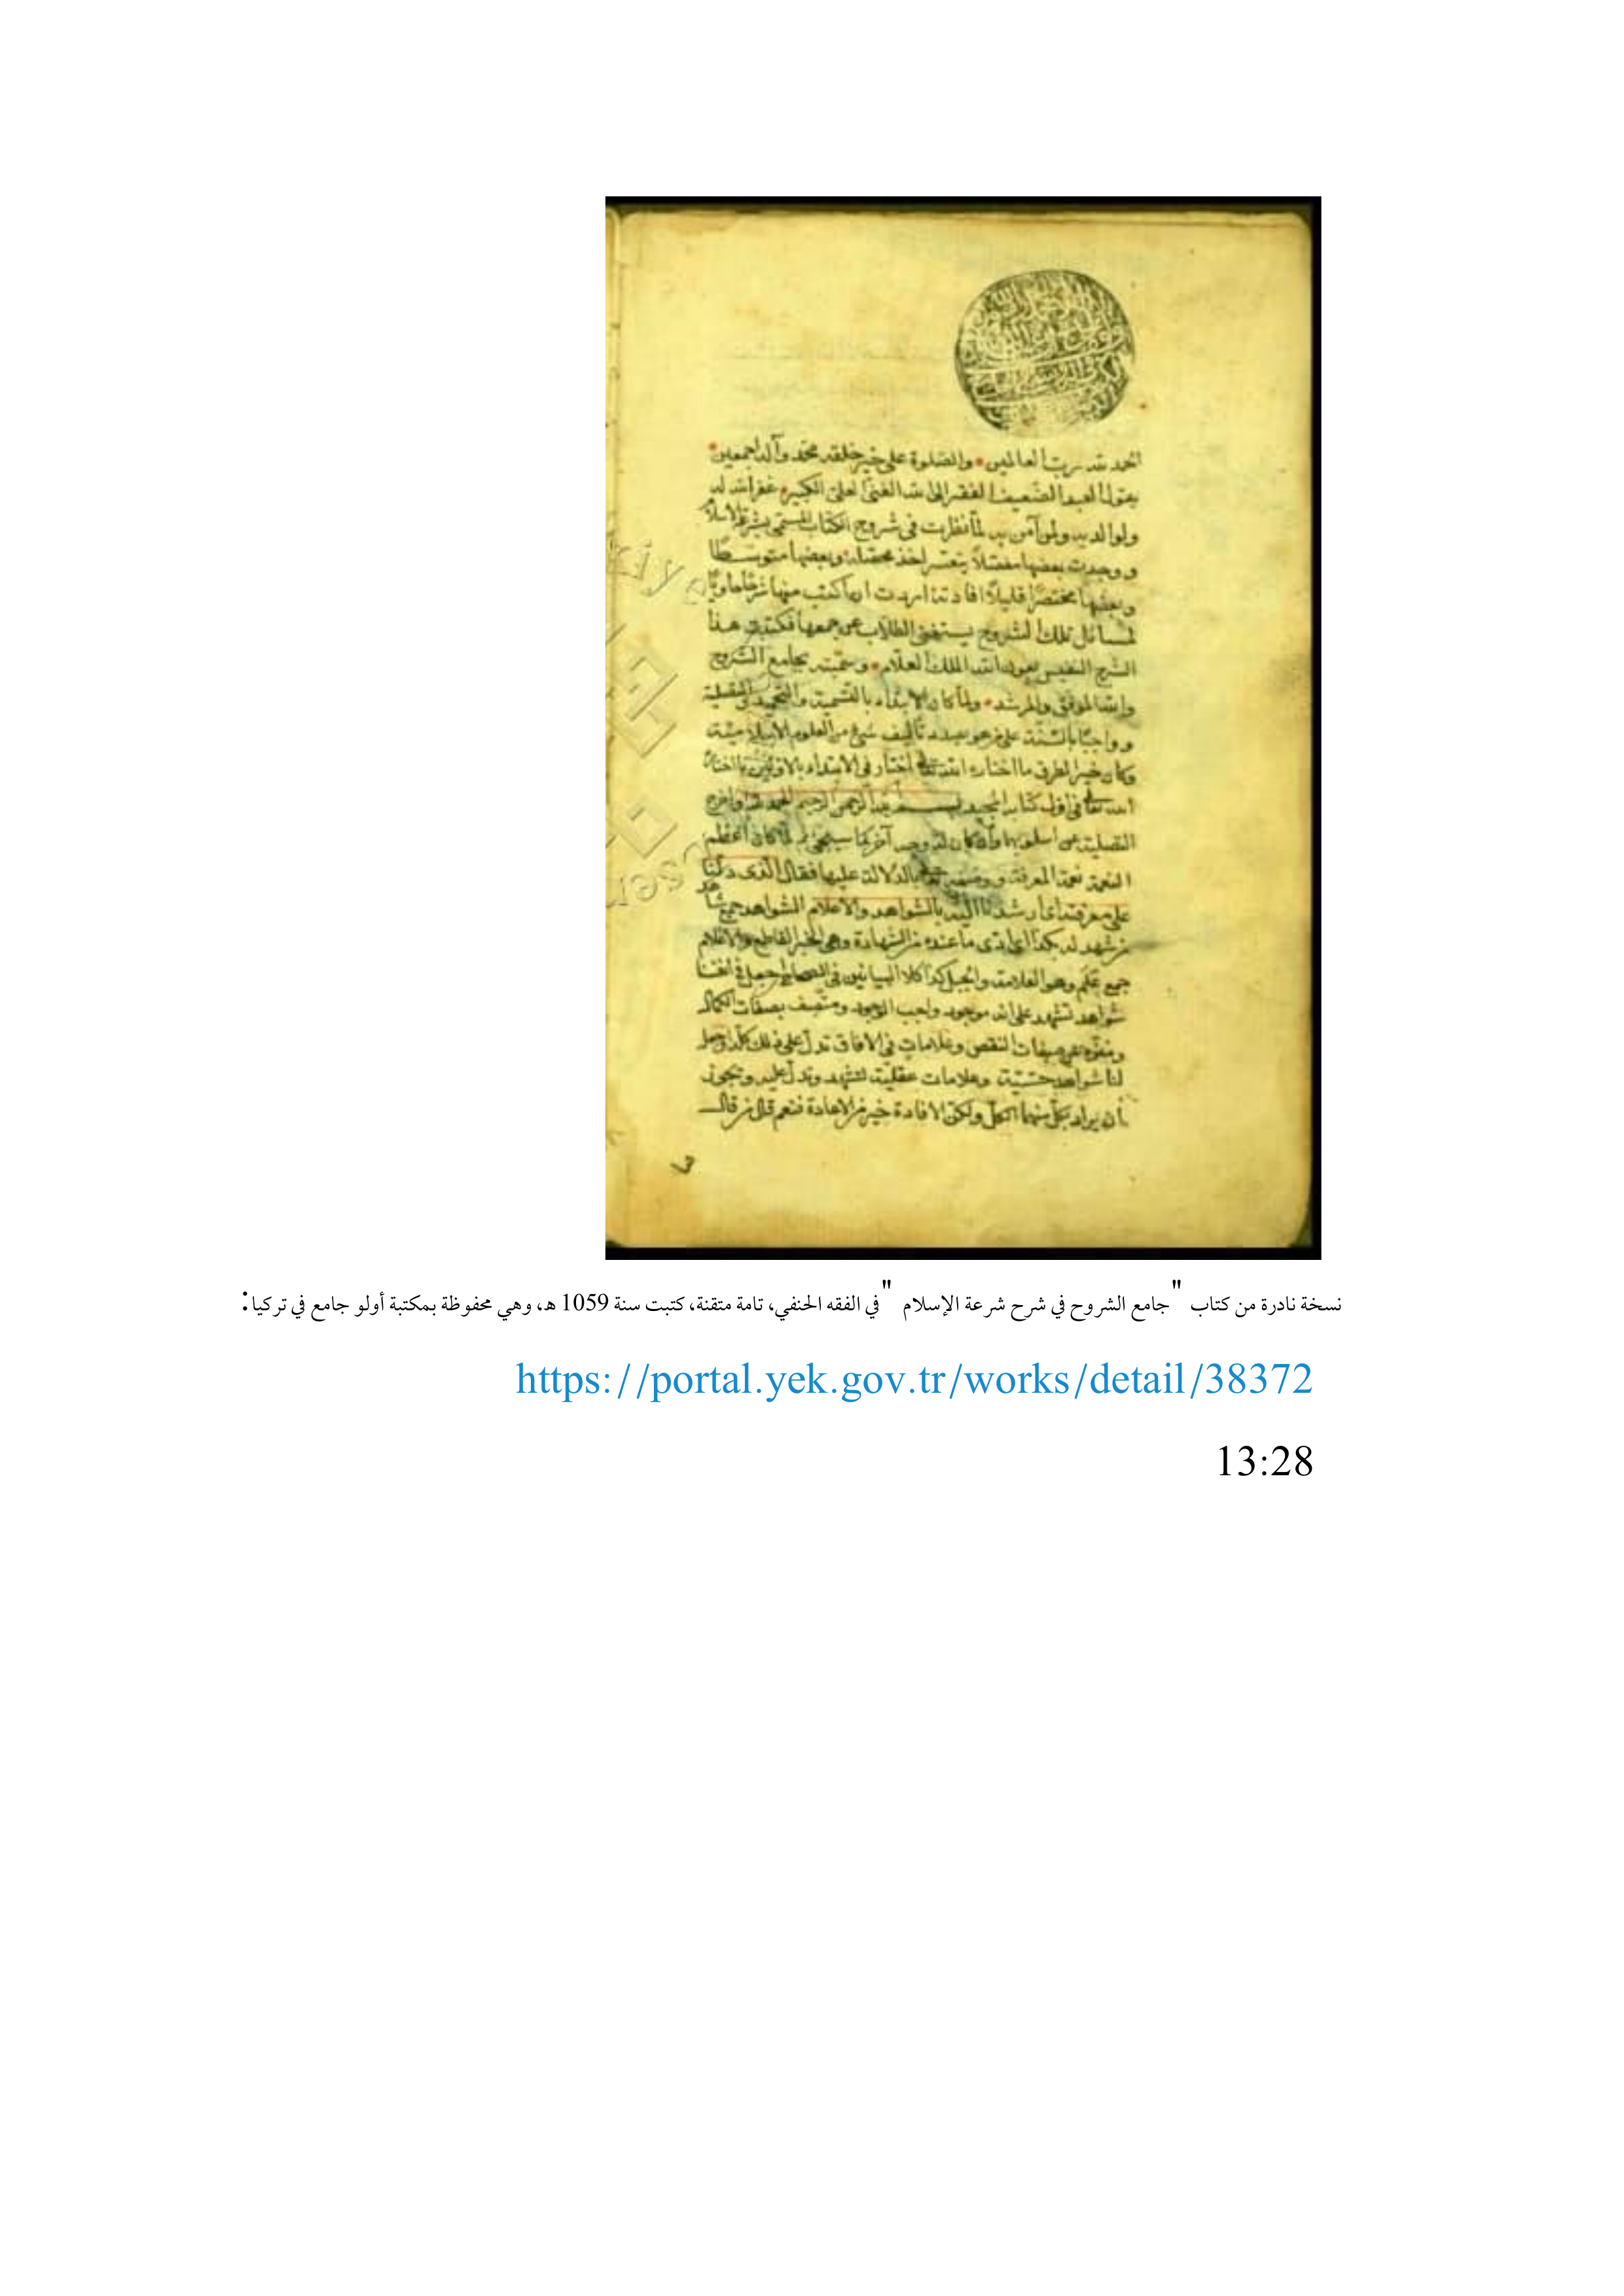 الحمد لله رب العالمين والصلوة على خير خلقه محمد وآله اجمعين
يقول العبد الضعيف الفقير الى الله الغنى العلى الكبير غفر الله له
ولوالديه ولمن آمن به لما نظرت فى شروح الكتاب المسمى بشرعة الاسلام
ووجدت بعضها مفصلا يتعسر اخذ محصله وبعضها متوسطا
وبعضها مختصرا قليلا افادته اردت ان اكتب منها شرحا حاويا
لمسائل تلك الشروح يستغنى الطلاب عن جمعها فكتبت هذا
الشرح النفيس بعون الله الملك العلام وسميته بجامع الشروح
والله الموفق والمرشد ولما كان الابتداء بالتسمية والتحميد والتصلية
وواجبا بالسنة على من هو بصدد تأليف شئ من العلوم الاسلامية
وكان خير الطرق ما اختاره الله تعالى اختار فى الابتداء بالاولين ما اختاره
الله تعالى فى اول كتابه المجيد بسم الله الرحمن الرحيم الحمد لله
التصلية عن اسلوبها وان كان له وجه آخر كما سيجئ ولما كان اعظم
النعمة نعمة المعرفة بالدلالة عليها فقال الذى دلنا
على معرفته اى ارشدنا اليه بالشواهد والاعلام الشواهد جمع شاهد
من شهد له بكذا اى ادى ما عنده من الشهادة وهى الخبر القاطع والاعلام
جمع علم وهو العلامة والجبل كذا فى الصحاح جعل فى انفسنا
شواهد تشهد على انه موجود واجب الوجود ومتصف بصفات الكمال
ومنزه عن صفات النقص وعلامات فى الافاق تدل على ذلك كله
لنا شواهد حسية وعلامات عقلية لتشهد وتدل عليه ويجوز
ان يراد بكل منهما الكل ولكن الافادة خير من الاعادة فنعم قال من قال
نسخة نادرة من كتاب "جامع الشروح في شرح شرعة الإسلام" في الفقه الحنفي، تامة متقنة، كتبت سنة 1059 هـ، وهي محفوظة بمكتبة أولو جامع في تركيا:
https://portal.yek.gov.tr/works/detail/38372
13:28